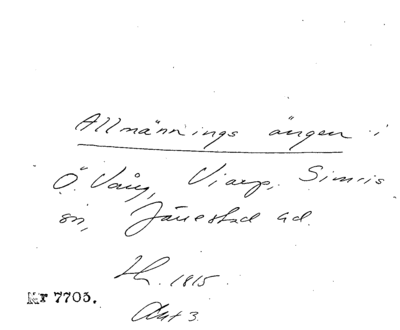 Allmännings ängen i
Ö. Vång, Viarp, Simris
sn, Järrestad hd.
Lh. 1815.
Nr 7705. Akt 3.